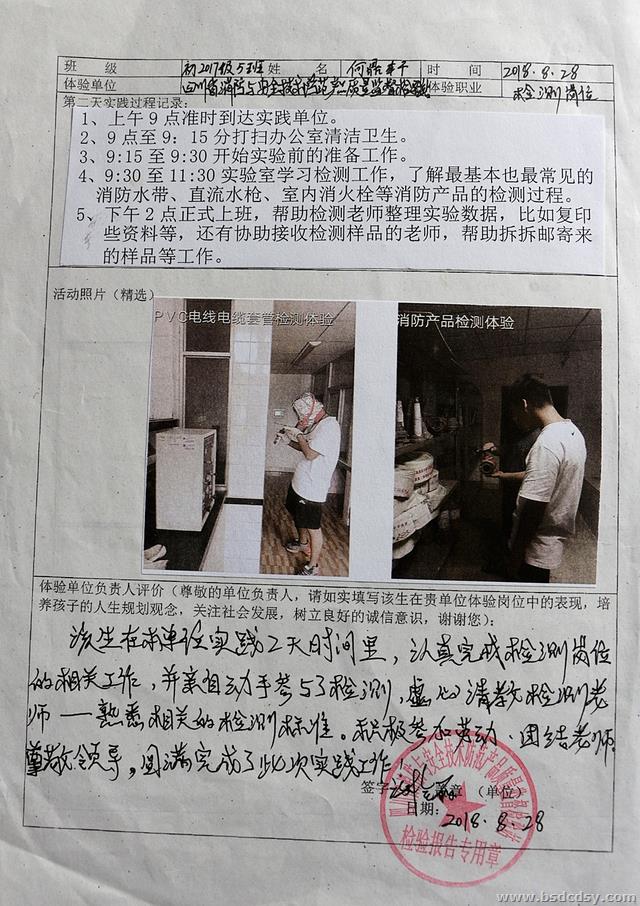 班 级 初2017级5班 姓 名 时 间 2018.8.28
体验单位 四川省消防与安全技术防范产品质量监督检验站 体验职业 检测岗位
第二天实践过程记录:
1、上午9点准时到达实践单位。
2、9点至9:15分打扫办公室清洁卫生。
3、9:15至9:30开始实验前的准备工作。
4、9:30至11:30实验室学习检测工作,了解最基本也最常见的
消防水带、直流水枪、室内消火栓等消防产品的检测过程。
5、下午2点正式上班,帮助检测老师整理实验数据,比如复印
些资料等,还有协助接收检测样品的老师,帮助拆拆邮寄来
的样品等工作。
活动照片(精选)
PVC电线电缆套管检测体验
消防产品检测体验
体验单位负责人评价(尊敬的单位负责人,请如实填写该生在贵单位体验岗位中的表现,培
养孩子的人生规划观念,关注社会发展,树立良好的诚信意识,谢谢您):
该生在我单位实践2天时间里,认真完成检测岗位
的相关工作,并亲自动手参与了检测,虚心请教检测老
师——熟悉相关的检测标准。积极参加劳动、团结老师
尊敬领导,圆满完成了此次实践工作!
签字 盖章 (单位)
日期: 2018.8.28
检验报告专用章
www.bsdcdsy.com